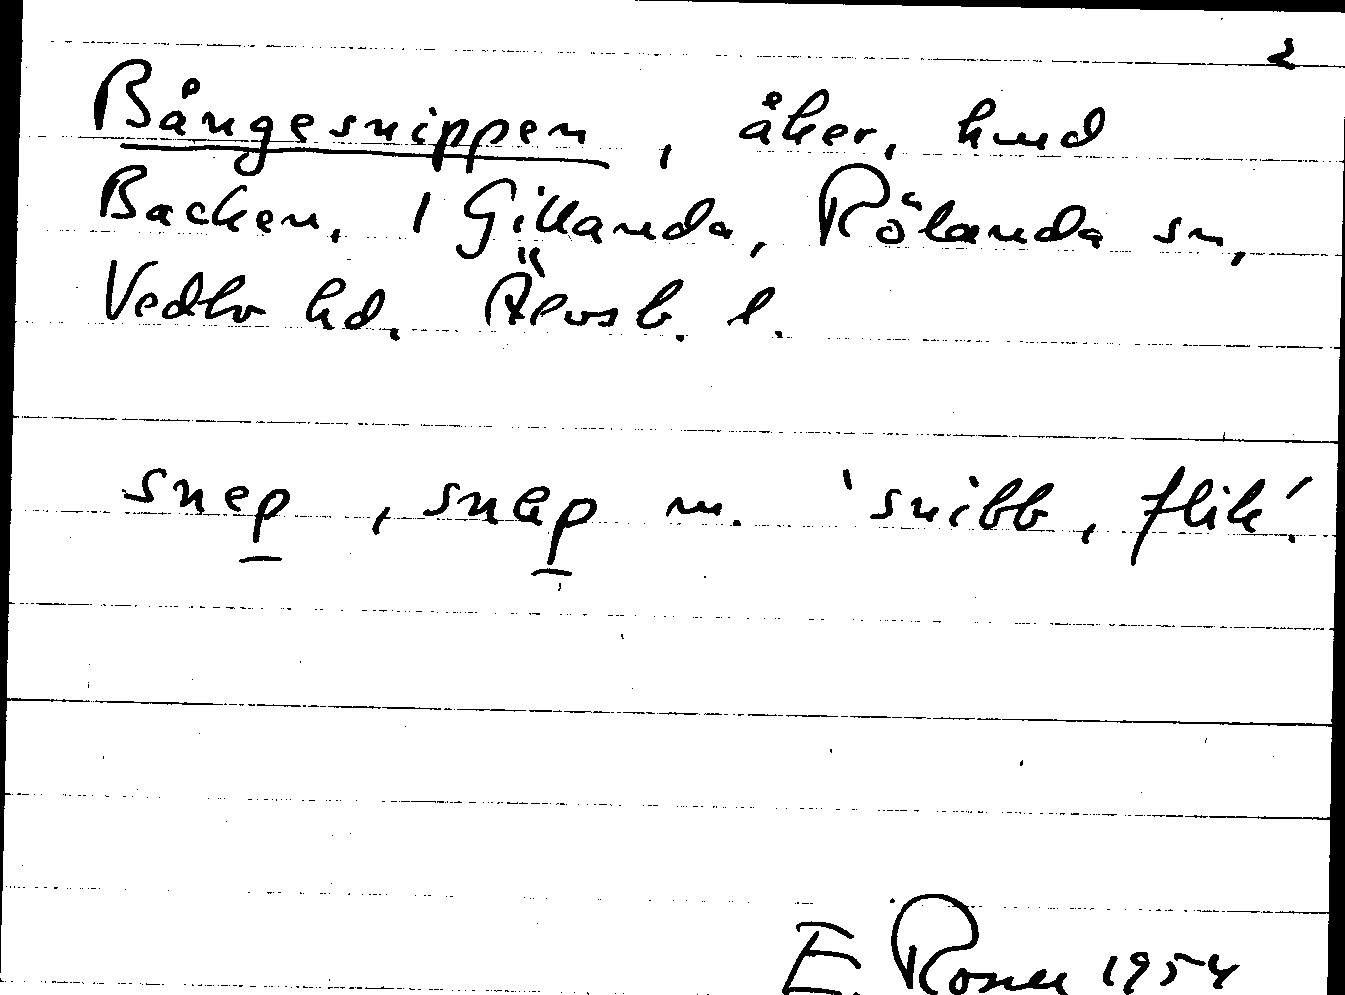 2
Bångesnippen, åker, hmd
Backen, 1 Gillanda, Rölanda sn,
Vedbo hd. Älvsb. l.
snep, snäp m. 'snibb, flik'.
E. Rosell 1954